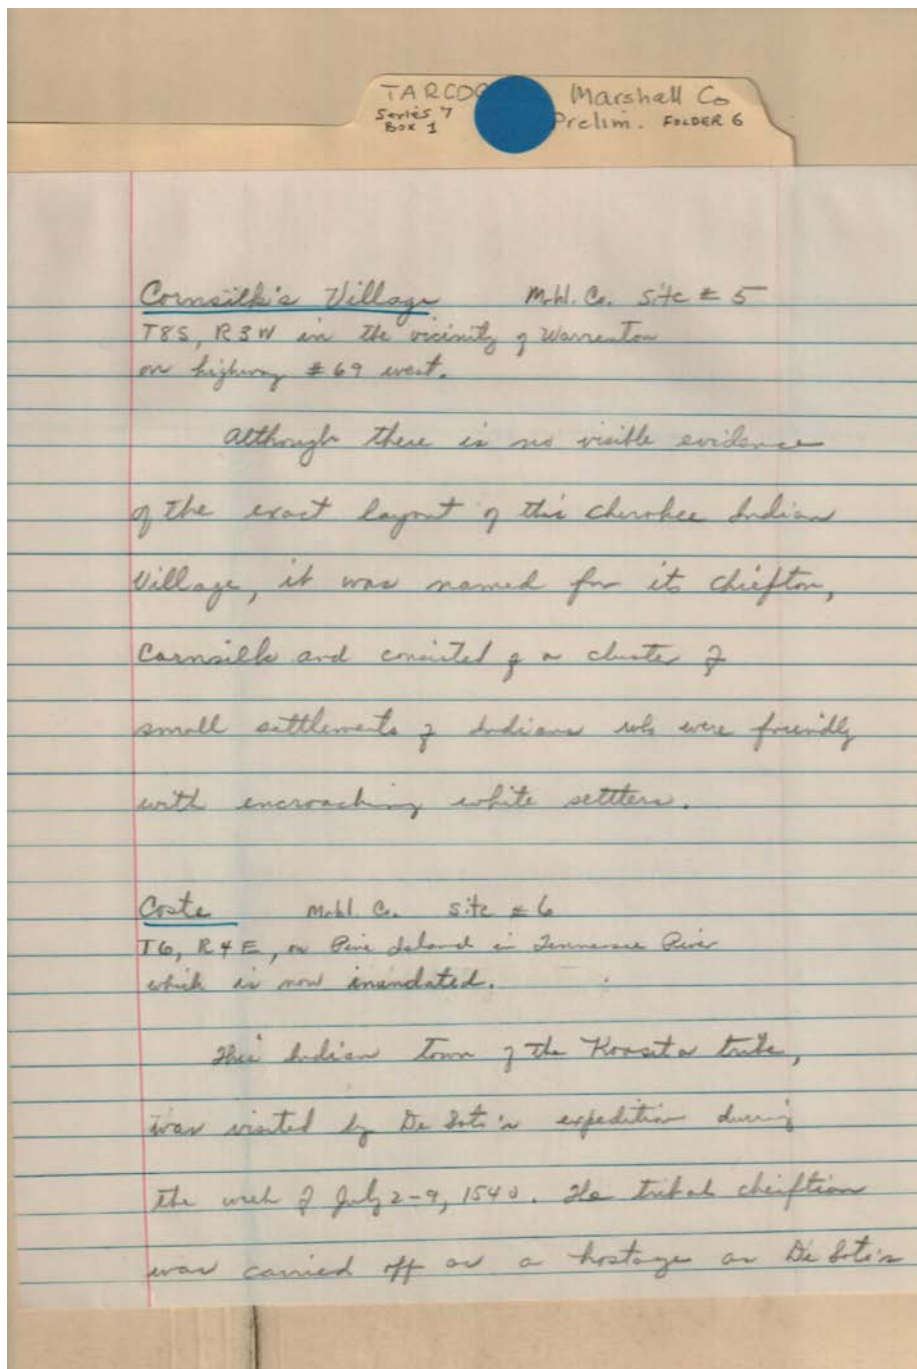 TARCOG Marshall Co
Series 7 Prelim. FOLDER 6
Box 1
Cornsilk's Village Mrhl. Co. Site # 5
T8S, R3W in the vicinity of Warrenton
on highway #69 west.
Although there is no visible evidence
of the exact layout of this Cherokee Indian
Village, it was named for its chiefton,
Cornsilk and consisted of a cluster of
small settlements of Indians who were friendly
with encroaching white settlers.
Coste Mrhl. Co. Site # 6
T6, R4E, on Pine Island in Tennessee River
which is now inundated.
This Indian town of the Koasita tribe,
was visited by De Soto's expedition during
the week of July 2-9, 1540. The tribal cheiftion
was carried off as a hostage as De Soto's